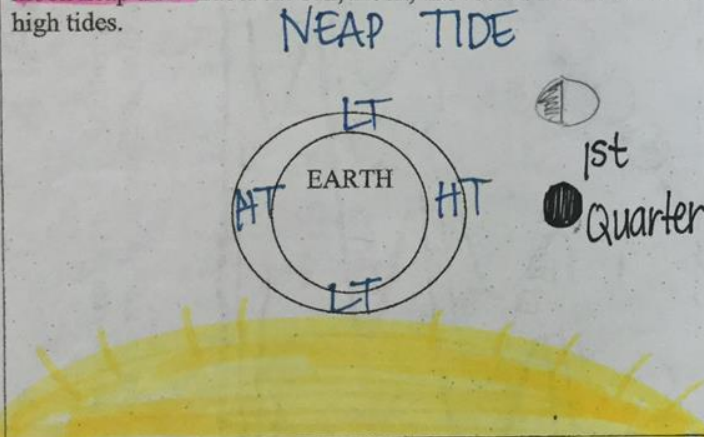 high tides.
NEAP TIDE
LT
EARTH
HT
HT
1st
Quarter
LT